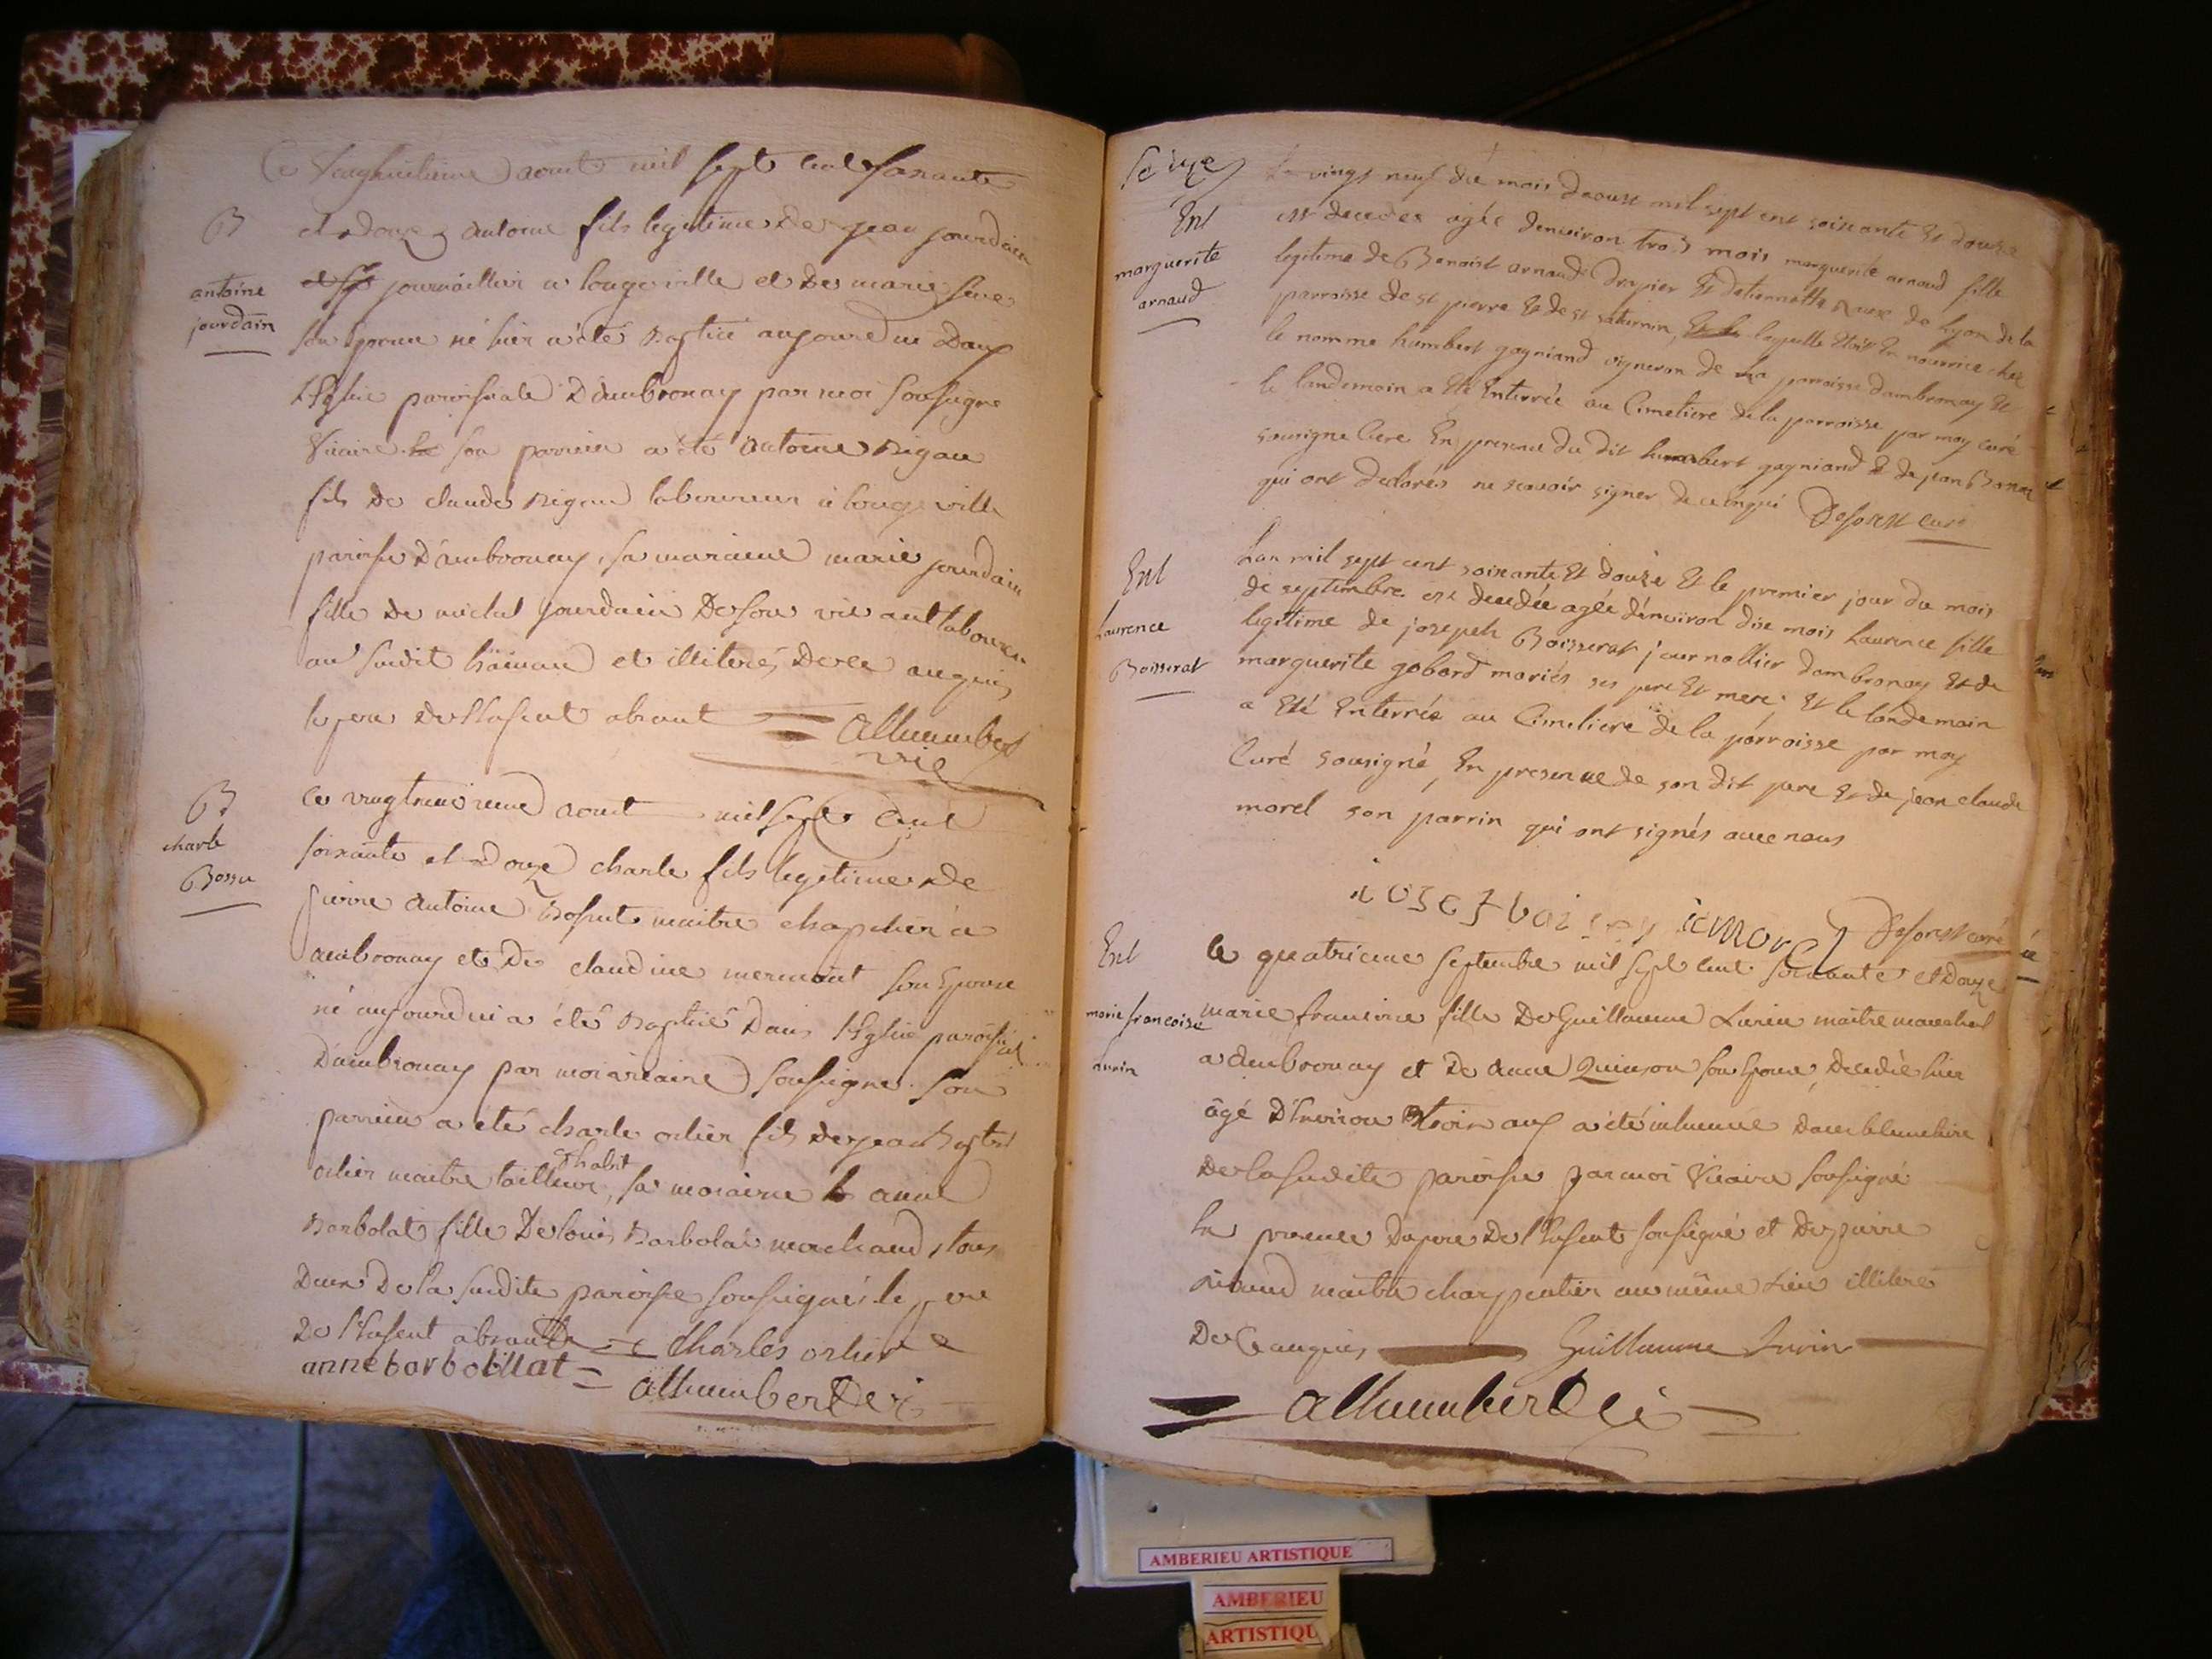 Ce vingthuitieme aout mil sept cent soixante
B
et douze antoine fils legitime de jean jourdain
antoine
jourdain
journaillier a longeville et de marie seve
son epouse né hier a été baptisé aujourdui dans
l'Eglise paroissiale d'ambronay par moi soussigné
vicaire son parrein a été antoine rigau
fils de claude rigau laboureur à longeville
paroisse d'ambronay, sa maraine marie jourdain
fille de michel jourdain de son vivant laboureur
au susdit hameau et illiteres de ce enquis
le pere de l'enfent absent
Alhumbert
vic
B
charle
Bossu
ce vingtneuvieme aout mil sept cent
soixante et douze charle fils legitime de
pierre antoine bossut maitre chapelier a
ambronay et de claudine mermont son epouse
né aujourdui a été baptisé dans l'Eglise paroissial
d'ambronay par moi vicaire soussigné son
parrein a été charle orlier fils de jean baptiste
orlier maitre tailleur d'habit, sa maraine anne
barbolat fille de louis barbolat marchand, tous
deux de la susdite paroisse soussignés le pere
de l'enfent absent Charles orlier
anne barbollat
Alhumbert vi
seize
Ent
marguerite
arnaud
Le vingt neuf du mois d'aoust mil sept cent soixante Et douze
est decedée agée denviron trois mois marguerite arnaud fille
legitime de Benoist arnaud drapier Et detiennette de Lyon de la
parroisse de st pierre Et de st saturnin, laquelle etoit En nourrice chez
le nomme humbert gagniand vigneron de la parroisse dambronay Et
le landemain a Eté Enterrée au Cimetiere de la parroisse par moy curé
sousigne En presence du dit humbert gagniand Et de jean
qui ont declarés ne scavoir signer de ce enqui Deforest curé
Ent
Laurence
Boisserat
Lan mil sept cent soixante Et douze Et le premier jour du mois
de septembre est decedée agée d'environ dix mois Laurence fille
legitime de joseph Boisserat journallier dambronay Et de
marguerite gobard mariés ses pere Et mere Et le landemain
a Eté Enterrée au Cimetiere de la parroisse par moy
Curé sousigné, En presence de son dit pere Et de jean claude
morel son parrin qui ont signés avec nous
morel Deforest curé
Ent
marie francoise
Lurin
le quatrieme septembre mil sept cent soixante et douze
marie francoise fille de Guillaume Lurin maitre marechal
a ambronay et de anne Quinson son epouse, decedée hier
âgé d'environ trois ans a été inhumée dans le cimetiere
de la susdite paroisse par moi vicaire soussigné
en presence du pere de l'enfent soussigné et de pierre
maitre charpentier au même lieu illiteré
de ce enquis Guillaume Lurin
Alhumbert vi
AMBERIEU ARTISTIQUE
AMBERIEU
ARTISTIQU